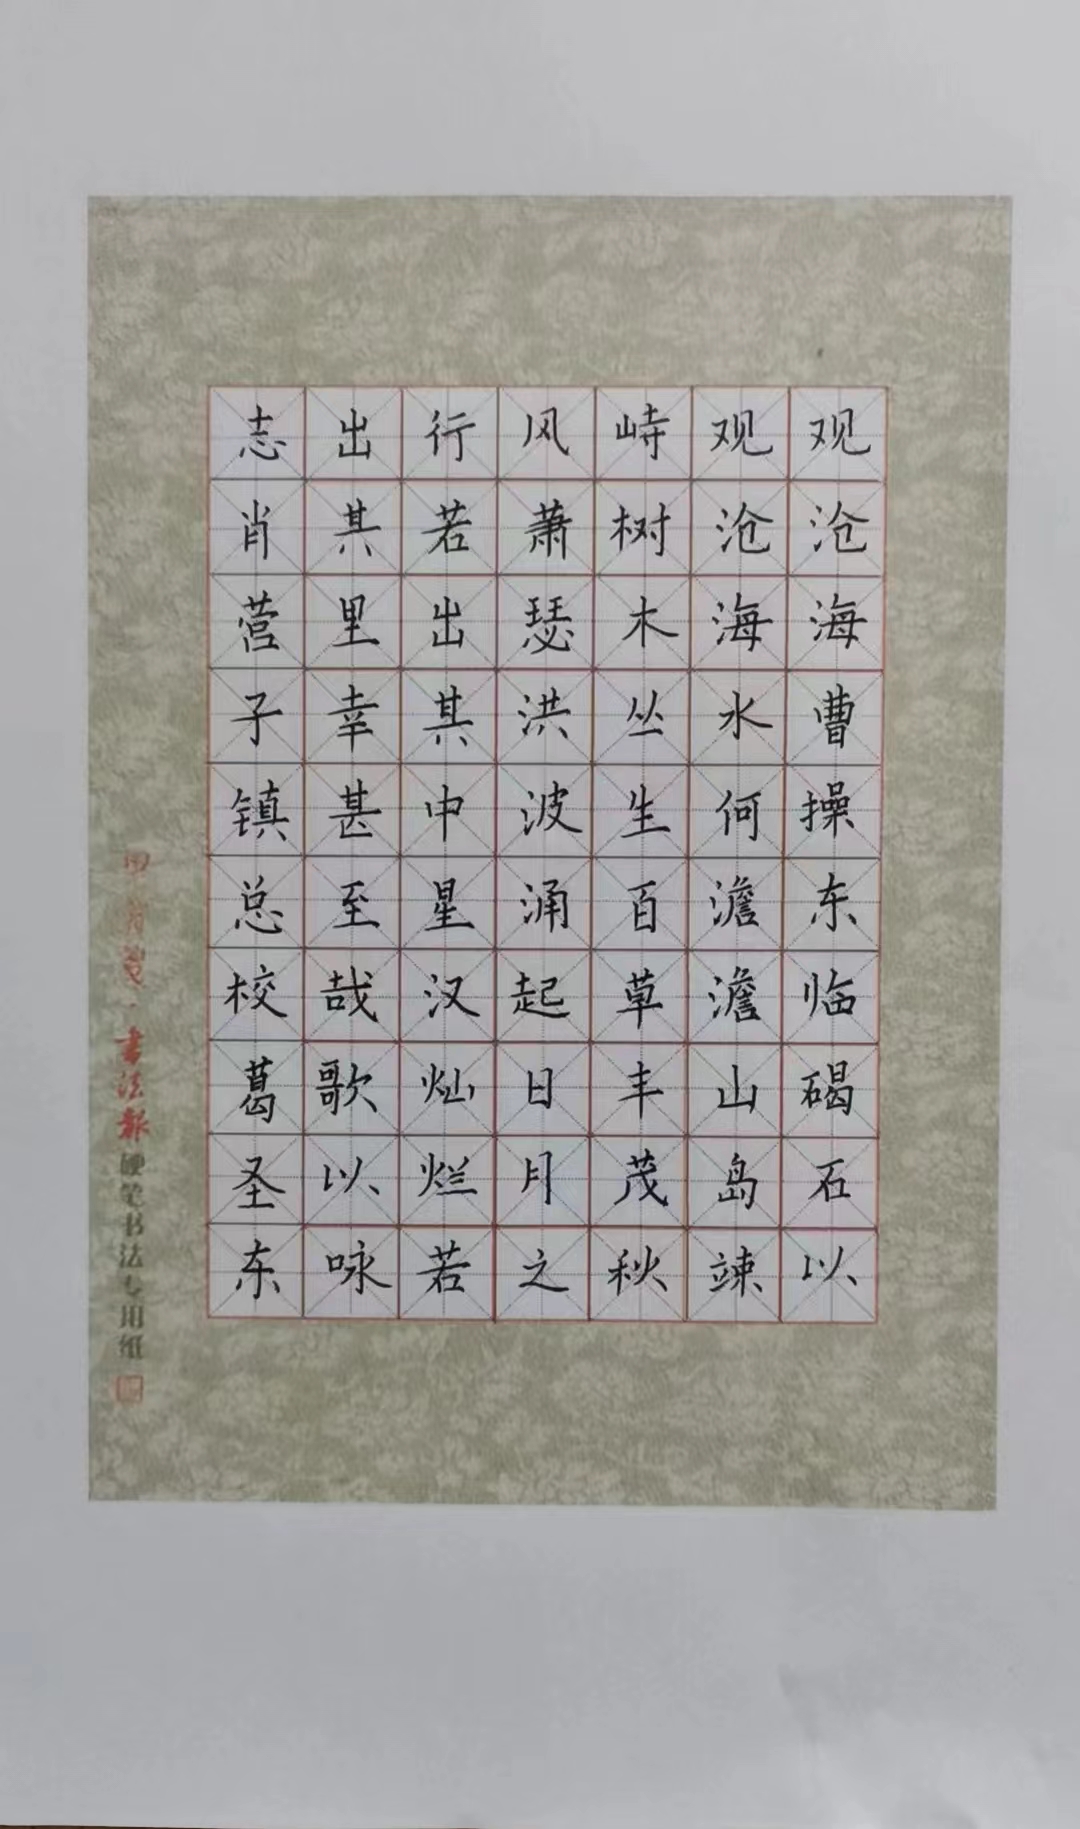 观沧海曹操东临碣石以
观沧海水何澹澹山岛竦
峙树木丛生百草丰茂秋
风萧瑟洪波涌起日月之
行若出其中星汉灿烂若
出其里幸甚至哉歌以咏
志肖营子镇总校葛圣东
书法报硬笔书法专用纸